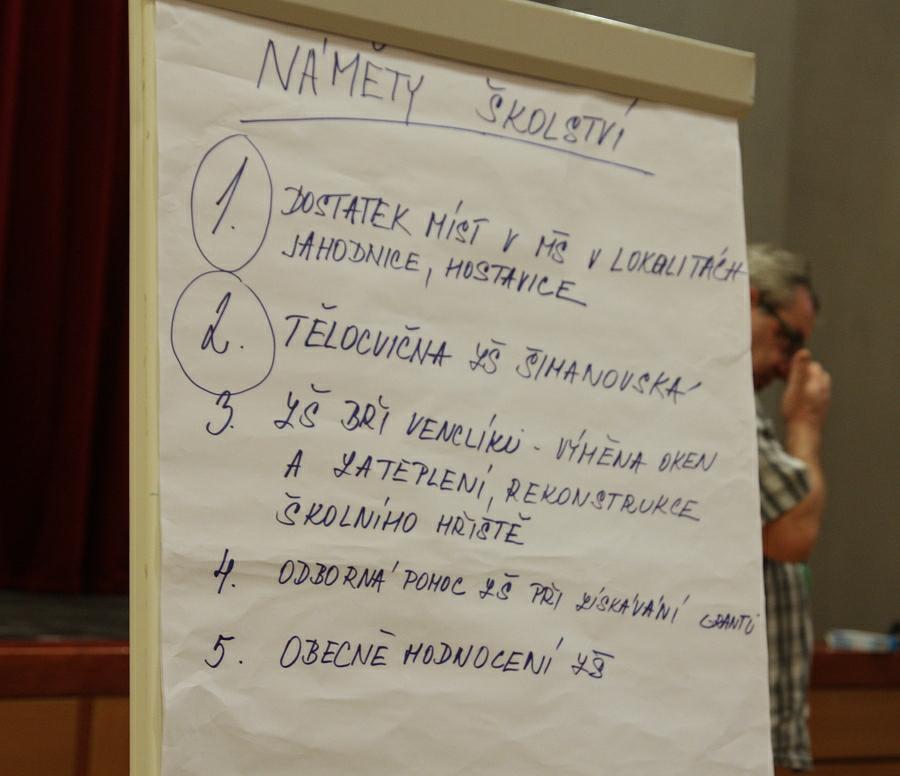 NÁMĚTY ŠKOLSTVÍ
1. DOSTATEK MÍST V MŠ V LOKALITÁCH
JAHODNICE, HOSTAVICE
2. TĚLOCVIČNA ZŠ ŠIMANOVSKÁ
3. ZŠ BŘÍ VENCLÍKŮ - VÝMĚNA OKEN
A ZATEPLENÍ, REKONSTRUKCE
ŠKOLNÍHO HŘIŠTĚ
4. ODBORNÁ POMOC ZŠ PŘI ZÍSKÁVÁNÍ GRANTŮ
5. OBECNĚ HODNOCENÍ ZŠ